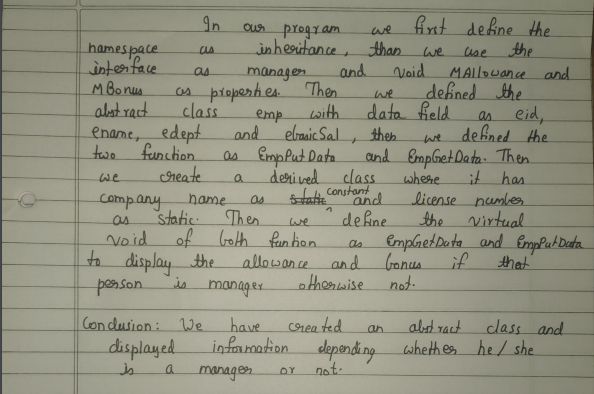 In our program we first define the
namespace as inheritance, than we use the
interface as manager and void MAllowance and
MBonus as properties. Then we defined the
abstract class emp with data field as eid,
ename, edept and ebasicSal, then we defined the
two function as EmpPutData and EmpGetData. Then
we create a derived class where it has
company name as static constant and license number
as static. Then we define the virtual
void of both funtion as EmpGetData and EmpPutData
to display the allowance and bonus if that
person is manager otherwise not.
Conclusion: We have created an abstract class and
displayed information depending whether he/she
is a manager or not.